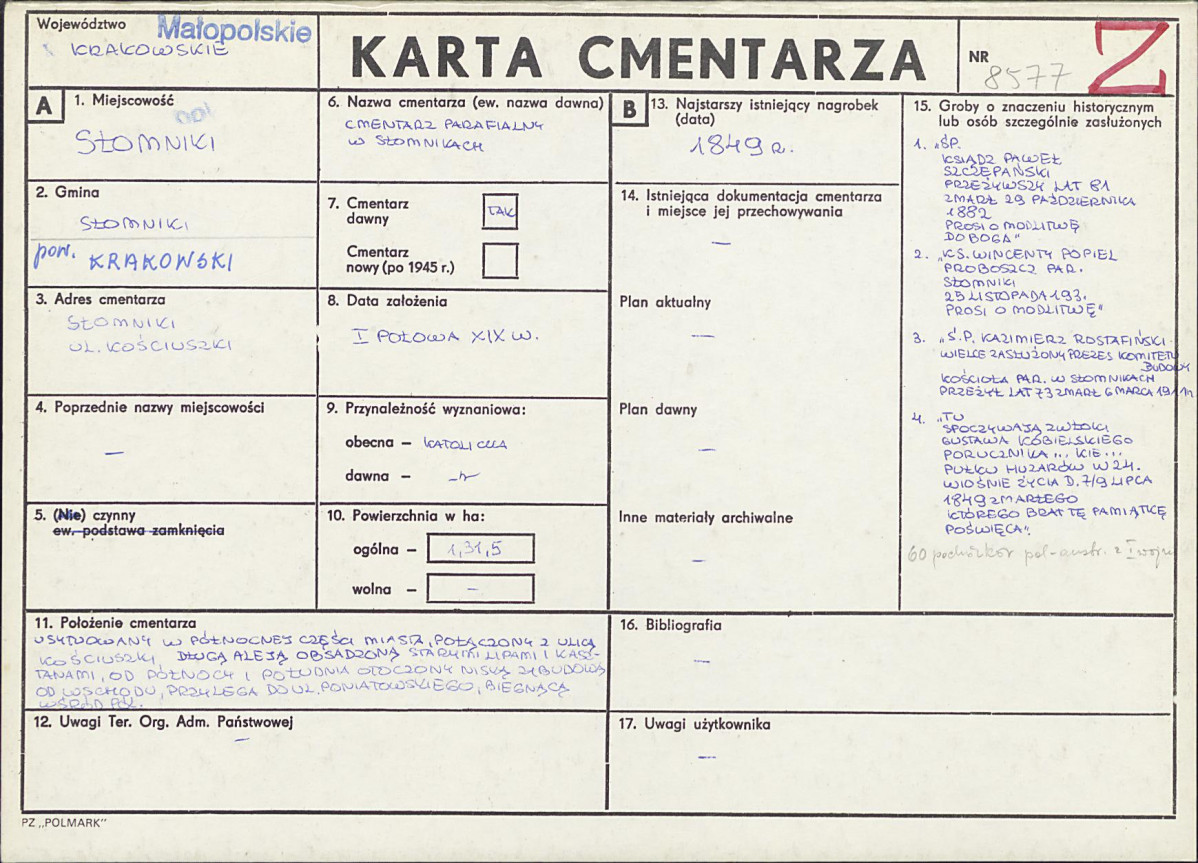 Województwo
Małopolskie
KRAKOWSKIE
KARTA CMENTARZA
NR
8577
Z
A
1. Miejscowość
SŁOMNIKI
2. Gmina
SŁOMNIKI
pow. KRAKOWSKI
3. Adres cmentarza
SŁOMNIKI
UL. KOŚCIUSZKI
4. Poprzednie nazwy miejscowości
—
5. (Nie) czynny
ew. podstawa zamknięcia
6. Nazwa cmentarza (ew. nazwa dawna)
CMENTARZ PARAFIALNY
W SŁOMNIKACH
7. Cmentarz
dawny
TAK
Cmentarz
nowy (po 1945 r.)
8. Data założenia
I POŁOWA XIX W.
9. Przynależność wyznaniowa:
obecna – KATOLICKA
dawna –
10. Powierzchnia w ha:
ogólna – 1,31,5
wolna – –
11. Położenie cmentarza
USYTUOWANY W PÓŁNOCNEJ CZĘŚCI MIASTA, POŁĄCZONY Z ULICĄ
KOŚCIUSZKI, DŁUGĄ ALEJĄ OBSADZONĄ STARYMI LIPAMI I KASZ-
TANAMI, OD PÓŁNOCY I POŁUDNIA OTOCZONY NISKĄ ZABUDOWĄ
OD WSCHODU, PRZYLEGA DO UL. PONIATOWSKIEGO, BIEGNĄCĄ
WŚRÓD PÓL.
12. Uwagi Ter. Org. Adm. Państwowej
—
B
13. Najstarszy istniejący nagrobek
(data)
1849 R.
14. Istniejąca dokumentacja cmentarza
i miejsce jej przechowywania
—
Plan aktualny
—
Plan dawny
—
Inne materiały archiwalne
—
15. Groby o znaczeniu historycznym
lub osób szczególnie zasłużonych
1. „ŚP.
KSIĄDZ PAWEŁ
SZCZEPAŃSKI
PRZEŻYWSZY LAT 81
ZMARŁ 29 PAŹDZIERNIKA
1882
PROSI O MODLITWĘ
DO BOGA"
2. „KS. WINCENTY POPIEL
PROBOSZCZ PAR.
SŁOMNIKI
25 LISTOPADA 193.
PROSI O MODLITWĘ"
3. „Ś.P. KAZIMIERZ ROSTAFIŃSKI
WIELCE ZASŁUŻONY PREZES KOMITETU
BUDOWY
KOŚCIOŁA PAR. W SŁOMNIKACH
PRZEŻYŁ LAT 73 ZMARŁ 6 MARCA
4. „TU
SPOCZYWAJĄ ZWŁOKI
GUSTAWA KOBIELSKIEGO
PORUCZNIKA ... KIE ...
PUŁKU HUZARÓW W 24.
WIOŚNIE ŻYCIA D. 7/9 LIPCA
1849 ZMARŁEGO
KTÓREGO BRAT TĘ PAMIĄTKĘ
POŚWIĘCA".
60 pol-austr. z I wojny
16. Bibliografia
—
17. Uwagi użytkownika
—
PZ „POLMARK"